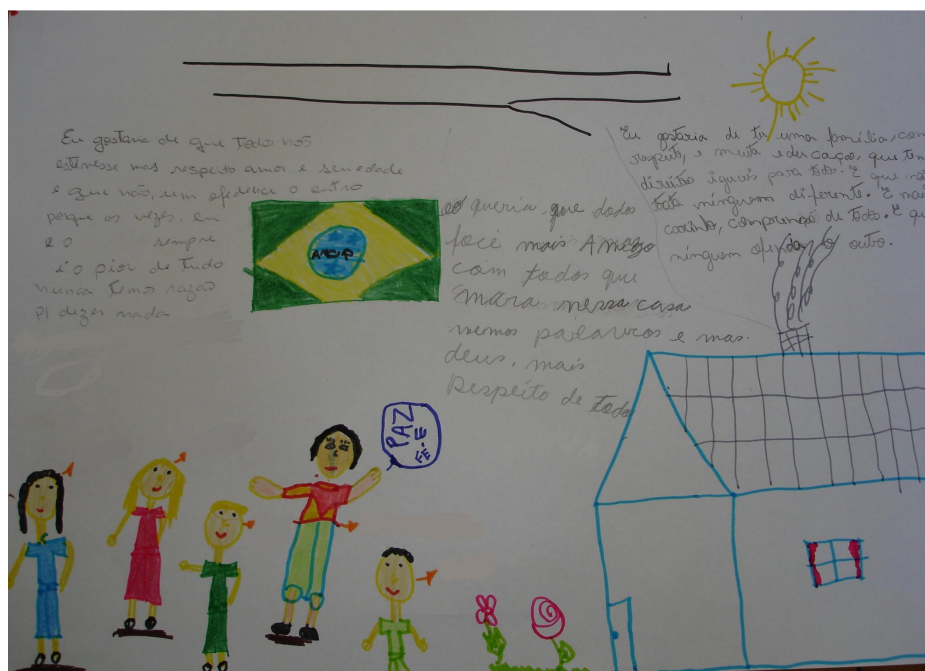 Eu gostaria de que todo nós
estevesse mas respeito amor e seriedade
e que não, um ofedence o outro
porque as vezes, em
e o sempre
e o pior de tudo
nunca temos razão
p/ dizer nada
AMOR
eo queria que dodos
foce mais Amego
com todos que
mara nessa casa
memos padavros e mas.
deus, mais
Respeito de todo
Eu gostaria de ter uma família, com
respeito, e muita educação, que ten
direito iguais para todo. E que não
trata ninguem diferente. E mais
carinho, comprenção de Todo. E que
ninguem ofenda o outro.
PAZ
FE-E